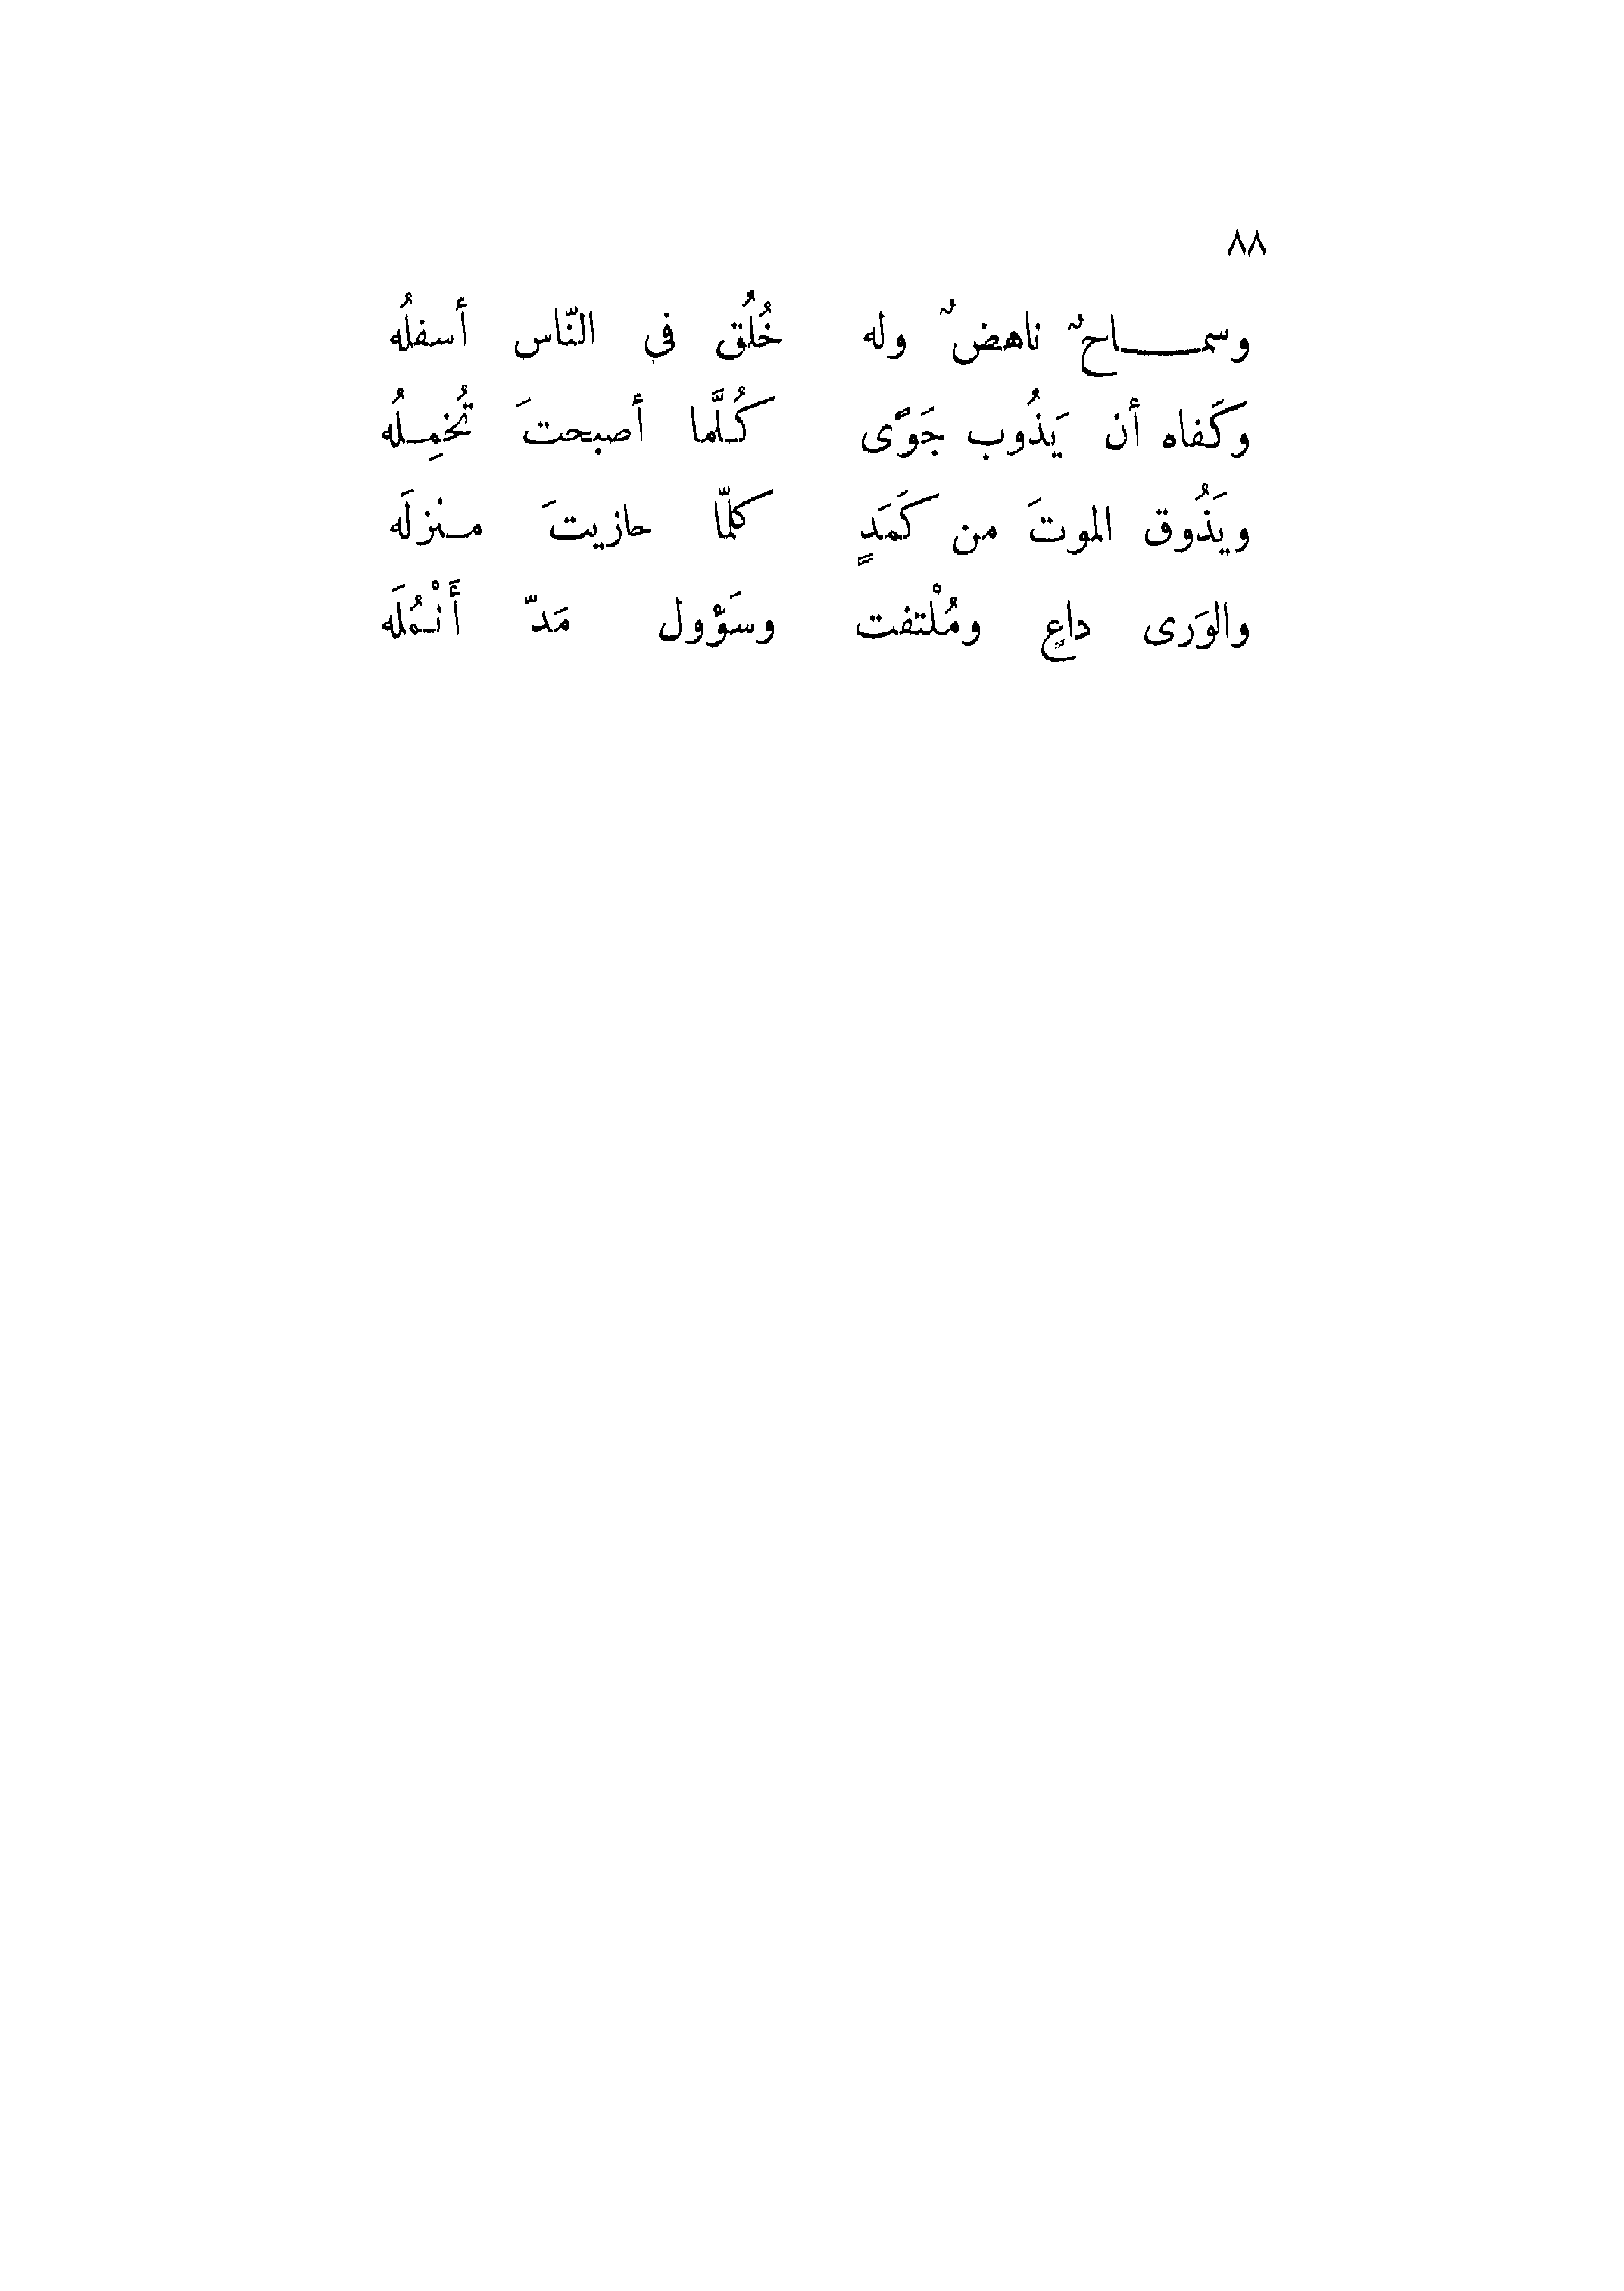 ٨٨
وسمـــــاحٌ ناهضٌ وله خُلُق في النّاس أسفلُه
وكَفاه أن يَذُوب جَوًى كُـلَّما أصبحتَ تُخمِـلُه
ويَذُوق الموتَ من كَمَدٍ كلمّا حازيتَ مـنزلَه
والوَرى داعٍ ومُلْتفت وسَؤول مَدّ أَنْـمُلَه